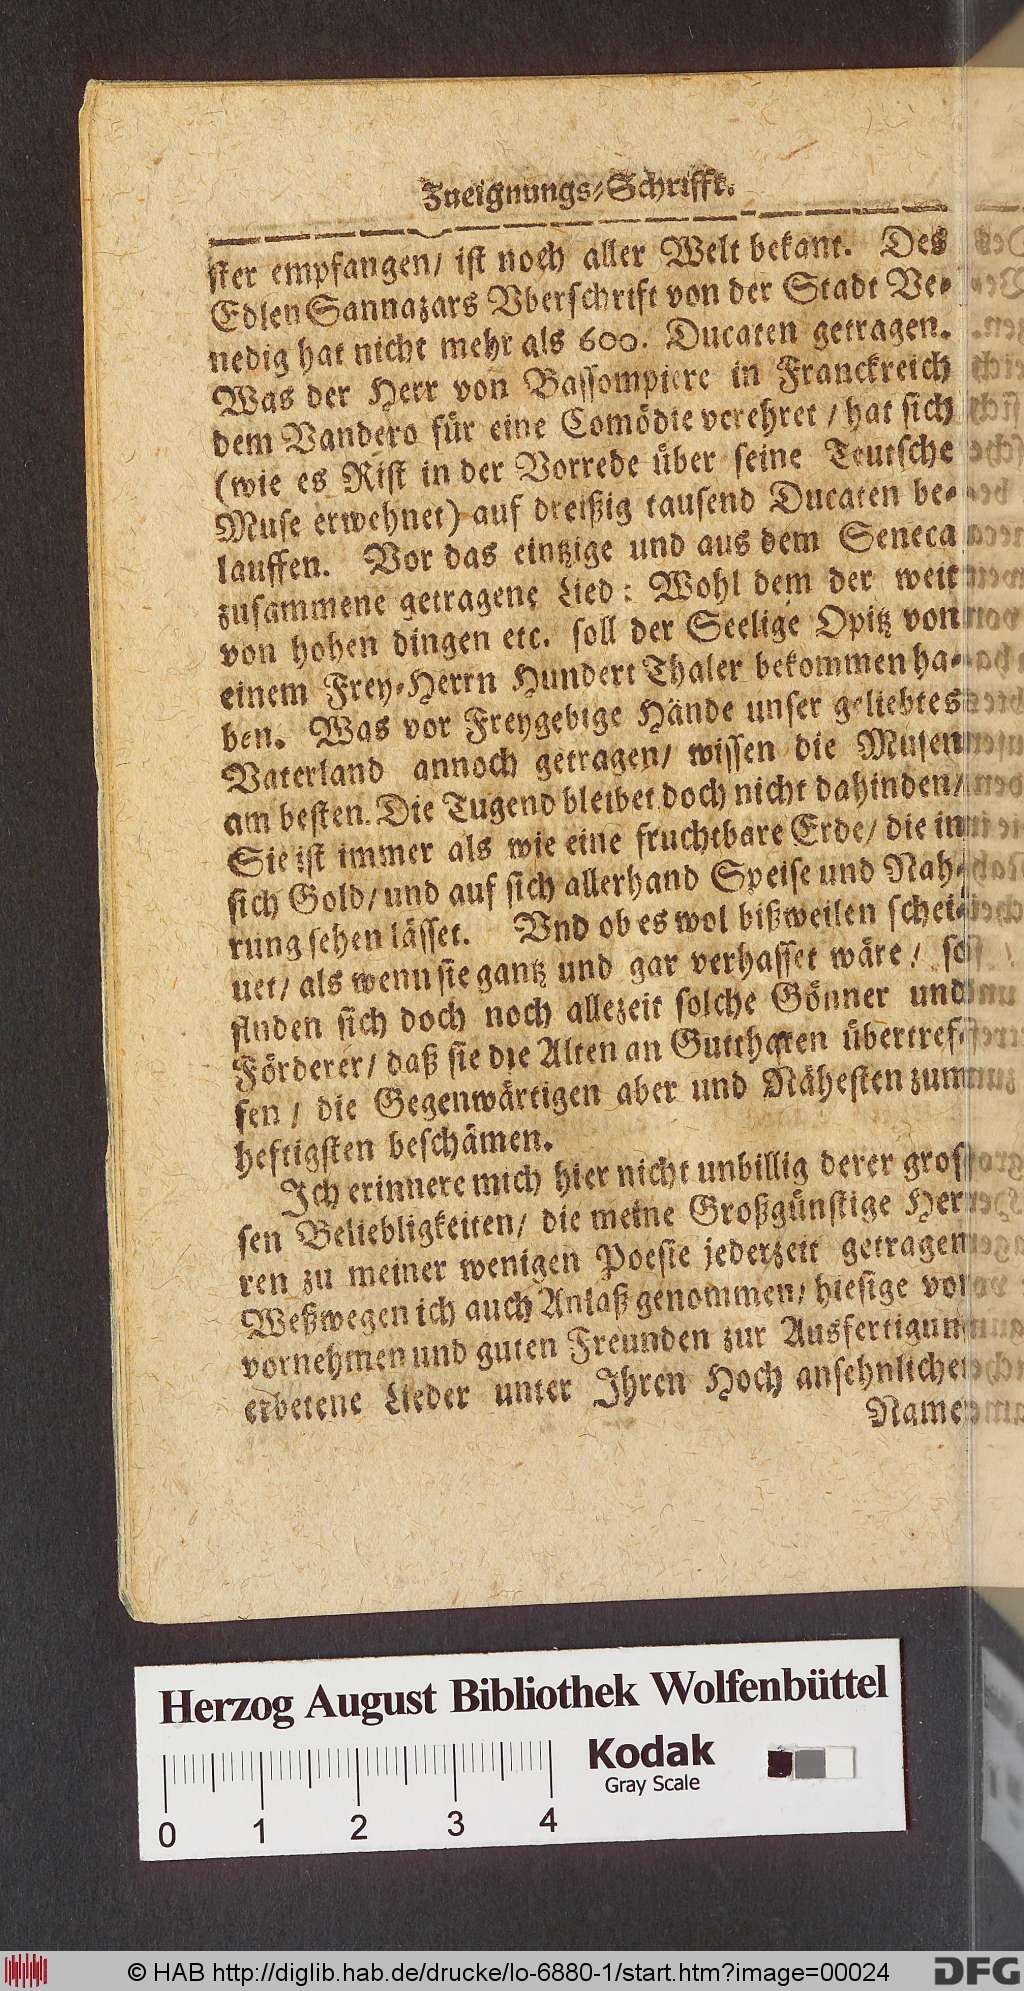 Zueignungs-Schrifft.
ster empfangen/ ist noch aller Welt bekant. Des
Edlen Sannazars Vberschrift von der Stadt Ve-
nedig hat nicht mehr als 600. Ducaten getragen.
Was der Herr von Bassompiere in Franckreich
dem Vandero für eine Comödie verehret / hat sich
(wie es Rist in der Vorrede über seine Teutsche
Muse erwehnet) auf dreißig tausend Ducaten be-
lauffen. Vor das eintzige und aus dem Seneca
zusammene getragene Lied: Wohl dem der weit
von hohen dingen etc. soll der Seelige Opitz von
einem Frey-Herrn Hundert Thaler bekommen ha-
ben. Was vor Freygebige Hände unser geliebtes
Vaterland annoch getragen/ wissen die Musen
am besten. Die Tugend bleibet doch nicht dahinden/
Sie ist immer als wie eine fruchtbare Erde/ die in
sich Gold/ und auf sich allerhand Speise und Nah-
rung sehen lässet. Vnd ob es wol bißweilen schei-
net/ als wenn sie gantz und gar verhasset wäre/ so
finden sich doch noch allezeit solche Gönner und
Förderer/ daß sie die Alten an Gutthaten übertref-
fen / die Gegenwärtigen aber und Nähesten zum
heftigsten beschämen.
Ich erinnere mich hier nicht unbillig derer gros-
sen Beliebligkeiten/ die meine Großgünstige Her-
ren zu meiner wenigen Poesie jederzeit getragen
Weßwegen ich auch Anlaß genommen/ hiesige von
vornehmen und guten Freunden zur Ausfertigung
erbetene Lieder unter Ihren Hoch ansehnlichen
Namen
Herzog August Bibliothek Wolfenbüttel
Kodak
Gray Scale
0 1 2 3 4
© HAB http://diglib.hab.de/drucke/lo-6880-1/start.htm?image=00024
DFG